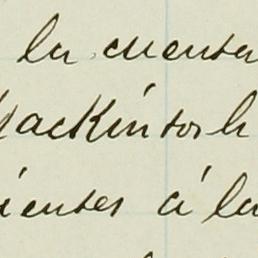 la cuenta
Mackintosh
ientes á la